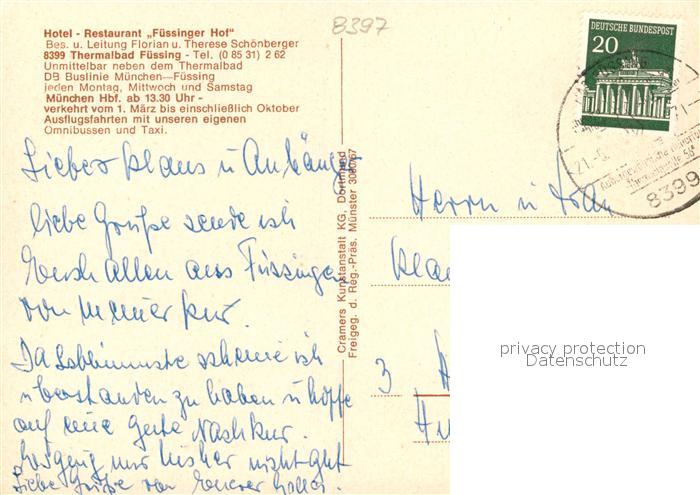 8397
Hotel - Restaurant „Füssinger Hof"
Bes. u. Leitung Florian u. Therese Schönberger
8399 Thermalbad Füssing - Tel. (0 85 31) 2 62
Unmittelbar neben dem Thermalbad
DB Buslinie München—Füssing
jeden Montag, Mittwoch und Samstag
München Hbf. ab 13.30 Uhr -
verkehrt vom 1. März bis einschließlich Oktober
Ausflugsfahrten mit unseren eigenen
Omnibussen und Taxi.
Lieber Klaus u Anhänger
liebe Grüße sende ich
Euch allen aus Füssingen
von meiner Kur.
Das schlimmste scheine ich
überstanden zu haben u hoffe
auf eine gute Nachkur.
mir bisher nicht gut
Liebe Grüße von
Cramers Kunstanstalt KG, Dortmund
Freigeg. d. Reg.-Präs. Münster 3060/67
DEUTSCHE BUNDESPOST
20
21.-
71.-
8399
Herrn u Frau
Kla
3 H
privacy protection
Datenschutz